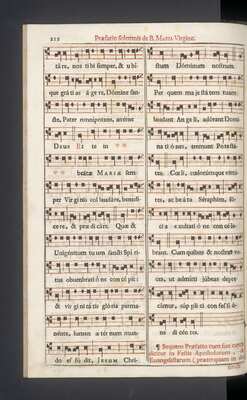 212 Præfatio solemnis de B. Maria Virgine.
táre, nos tibi semper, & ubi-
que gráti as á gere, Dómine san-
cte, Pater omnipotens, ætérne
Deus Et te in
beátæ MARIÆ sem-
per Vir gi nis col laudáre, benedí-
cere, & præ di cáre. Quæ &
Unigenitum tu um sancti Spi rí-
tus obumbrati ó ne con cé pit:
& vir gi ni tá tis glória perma-
nénte, lumen æ tér num mun-
do ef fú dit, JESUM Chri-
stum Dóminum nostrum.
Per quem ma je stá tem tuam
laudant An ge li, adórant Domi-
na ti ó nes, tremunt Potestá-
tes. Cœli, cœlorúmque virtú-
tes, ac be á ta Séraphim, só-
cia exultati ó ne con cé le-
brant. Cum quibus & nostras vo-
ces, ut admitti júbeas depre-
cámur, súp pli ci con fes si ó-
ne di cén tes.
¶ Sequens Præfatio cum suo cantu
dicitur in Festis Apostolorum, &
Evangelistarum ( præterquam in